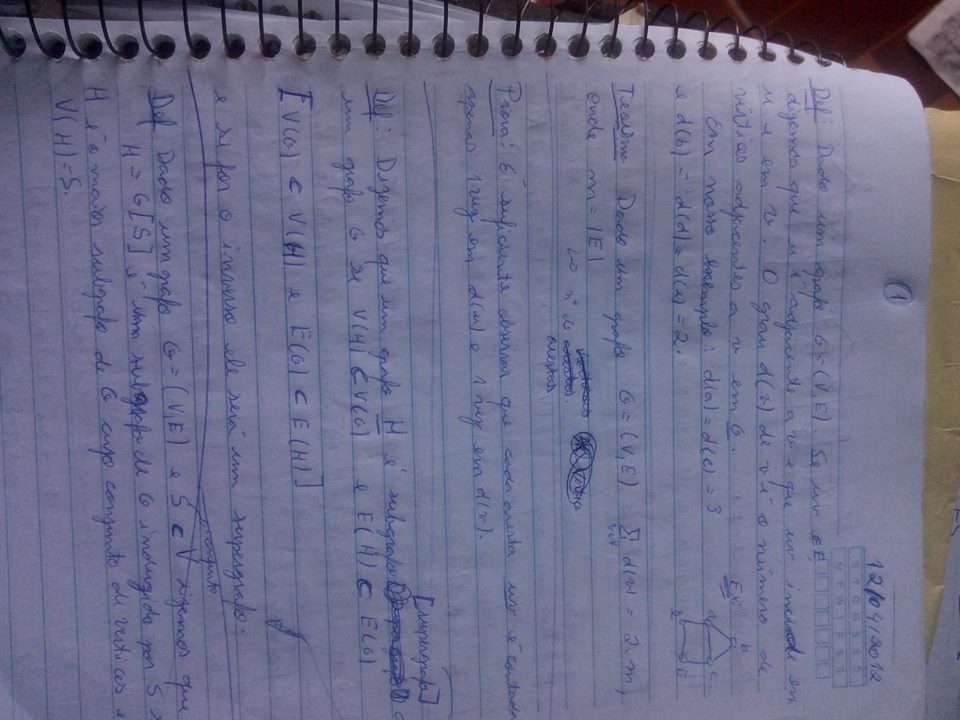 1
12/04/2012
S T Q Q S S D
M T W T F S S
Def: Dado um grafo G = (V,E). Se uv ∈ E,
dizemos que u é adjacente a v e que uv incide em
u e em v. O grau d(v) de v é o número de
vértices adjacentes a v em G. Ex:
Em nosso exemplo: d(a) = d(c) = 3
e d(b) = d(d) = d(e) = 2.
b
a c
e D
Teorema Dado um grafo G = (V,E) ∑ d(v) = 2.m,
v∈V
onde m = |E|
↳ nº de
arestas
Prova: É suficiente observar que cada aresta uv é contada
apenas 1 vez em d(u) e 1 vez em d(v).
[supergrafo]
Def: Dizemos que um grafo H é subgrafo
um grafo G se V(H) ⊂ V(G) e E(H) ⊂ E(G)
[V(G) ⊂ V(H) e E(G) ⊂ E(H)]
e se for o inverso ele será um supergrafo.
conjunto
Def Dado um grafo G = (V,E) e S ⊂ V dizemos que
H = G[S] é um subgrafo de G induzido por S
H é o maior subgrafo de G cujo conjunto de vértices é
V(H) = S.